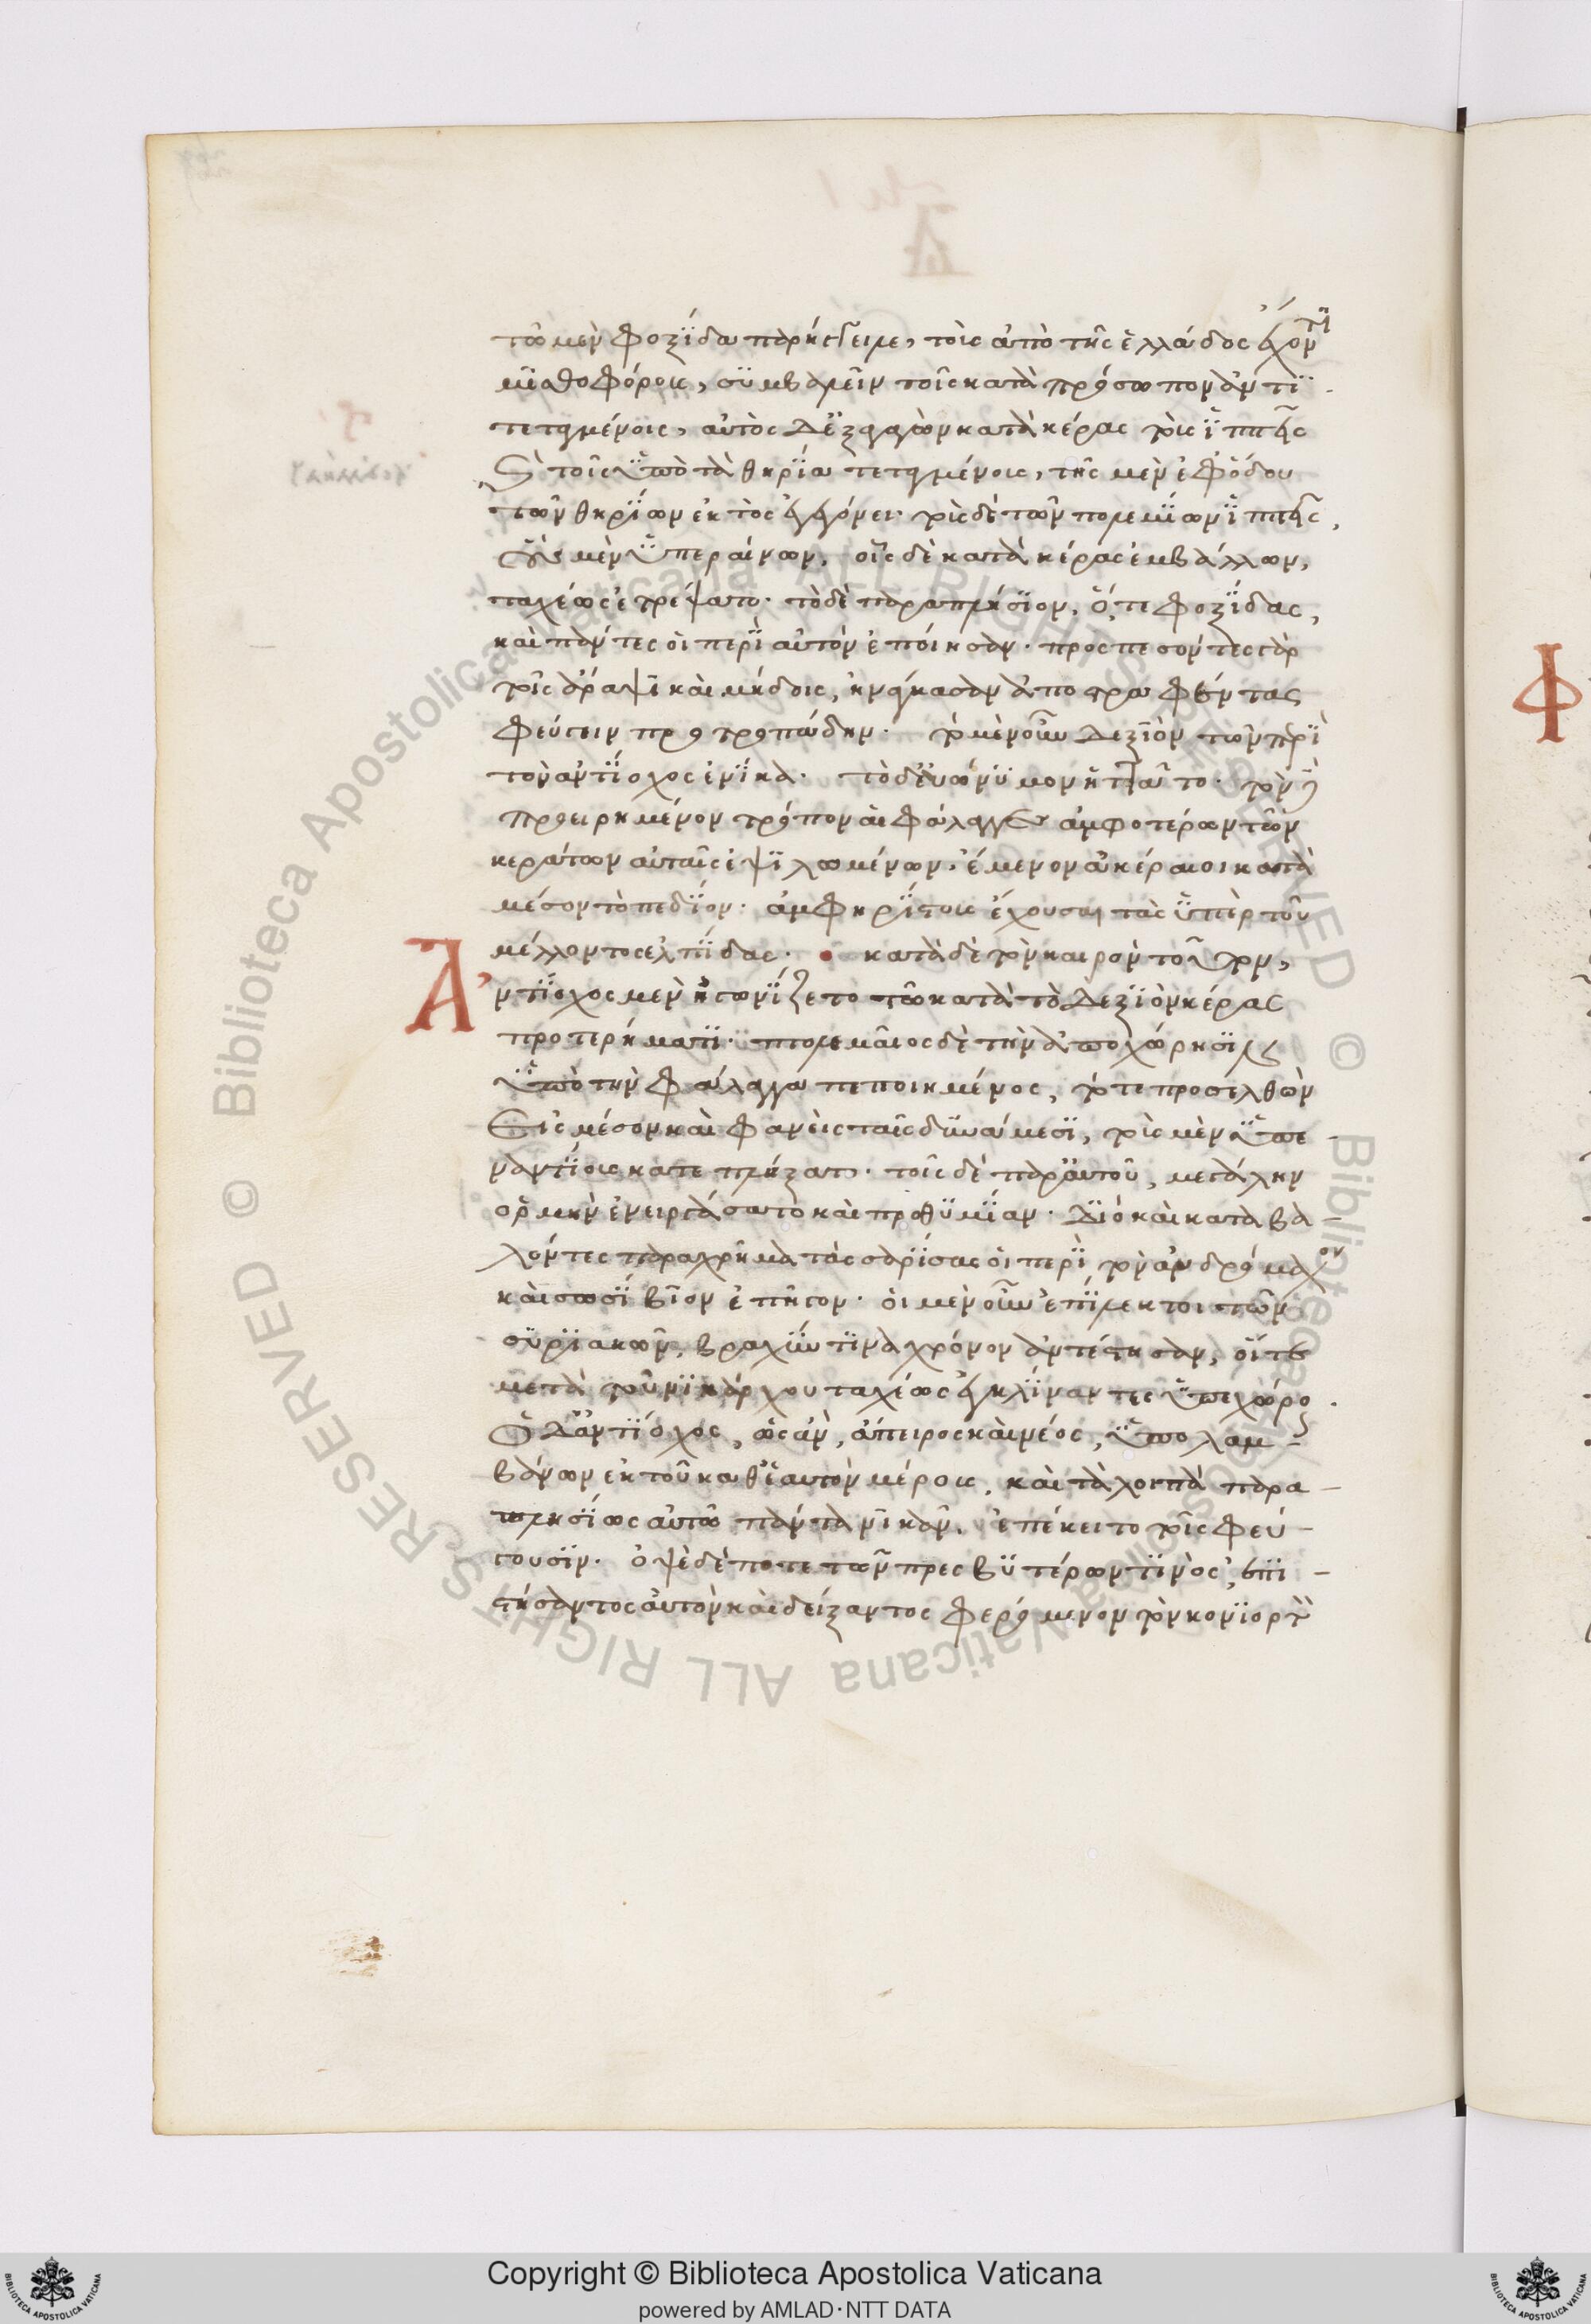 τῶ μὲν φοξΐδα παρήγγειλε, τοῖς ἀπὸ τῆς ἑλλάδος ἔχοντι
μισθοφόροις, σϋμβαλεῖν τοῖς κατὰ πρόσωπον ἀντϊ
τεταγμένοις, αὐτὸς δ' ἐξαγαγὼν κατὰ κέρας τοὺς ἱππεῖς
καὶ τοῖς ὑπὸ τὰ θηρΐα τεταγμένοις, τῆς μὲν ἐφόδου
τῶν θηρΐων ἐκτὸς ἐγεγόνει· τοὺς δὲ τῶν πολεμΐων ἱππεῖς,
οὓς μὲν ὑπεραίρων, οἷς δὲ κατὰ κέρας ἐμβάλλων,
ταχέως ἐτρέψατο· τὸ δὲ παραπλήσϊον, ὅ,τε φοξΐδας,
καὶ πάντες οἱ περὶ αὐτὸν ἐποίησαν· προσπεσόντες γὰρ
τοῖς ἄραψϊ καὶ μήδοις, ἠνάγκασαν ἀποστραφέντας
φεύγειν προτροπάδην· τὸ μὲν οὖν δεξϊὸν τῶν περὶ
τὸν ἀντΐοχος ἐνΐκα· τὸ δ' εὐώνϋμον ἡττᾶτο· τὸν
προειρημένον τρόπον αἱ φάλαγγες ἀμφοτέρων τῶν
κεράτων αὐταῖς ἐψϊλωμένων, ἔμενον ἀκέραιοι κατὰ
μέσον τὸ πεδΐον· ἀμφηρΐστους ἔχουσαι τὰς ὑπὲρ τοῦ
μέλλοντος ἐλπΐδας· κατὰ δὲ τὸν καιρὸν τοῦτον,
Ἀντΐοχος μὲν ἠγωνΐζετο τῶ κατὰ τὸ δεξϊὸν κέρας
προτερήματϊ· πτολεμαῖος δὲ τὴν ἀποχώρησϊν
ὑπὸ τὴν φάλαγγα πεποιημένος, τότε προσελθὼν
εἰς μέσον καὶ φανεὶς ταῖς δϋνάμεσϊ, τοὺς μὲν ὑπε
ναντΐους κατεπλήξατο· τοῖς δὲ παρ' αὐτοῦ, μεγάλην
ὁρμὴν ἐνειργάσατο καὶ προθϋμΐαν· διὸ καὶ καταβα
λόντες παραχρῆμα τὰς σαρΐσας οἱ περὶ τὸν ἀνδρόμαχον
καὶ σωσΐβϊον ἐπῆγον· οἱ μὲν οὖν ἐπΐλεκτοι τῶν
σϋρϊακῶν, βραχΰν τϊνα χρόνον ἀντέστησαν, οἵ τε
μετὰ τοῦ νϊκάρχου ταχέως ἐγκλΐναντες ὑπεχώρουν.
ὁ δ' ἀντΐοχος, ὡς ἂν, ἄπειρος καὶ νέος, ὑπολαμ
βάνων ἐκ τοῦ καθ' ἑαυτὸν μέρους, καὶ τὰ λοιπὰ παρα
πλησΐως αὐτῶ πάντα νϊκᾶν, ἐπέκειτο τοῖς φεύ
γουσϊν· ὀψὲ δέ ποτε τῶν πρεσβϋτέρων τϊνὸς, ἐπι
στήσαντος αὐτὸν καὶ δείξαντος φερόμενον τὸν κονϊορτὸν